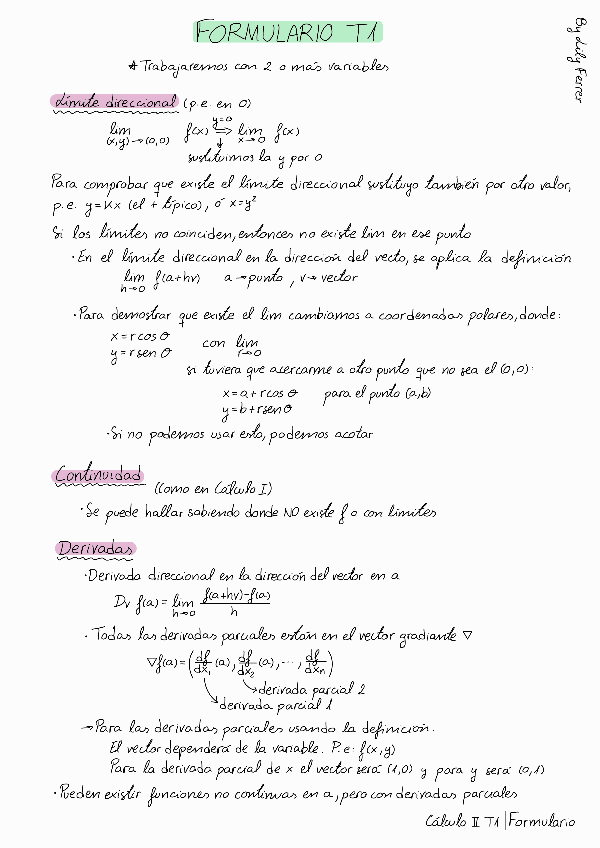 FORMULARIO T1
By Lily Ferrer
* Trabajaremos con 2 o más variables
Límite direccional (p.e. en 0)
lim (x,y)→(0,0) f(x) y=0 ⟹ lim x→0 f(x)
↓
sustituimos la y por 0
Para comprobar que existe el límite direccional sustituyo también por otro valor,
p.e. y=Kx (el + típico), ó x=y²
Si los límites no coinciden, entonces no existe lim en ese punto
· En el límite direccional en la dirección del vecto, se aplica la definición
lim h→0 f(a+hv) a→punto, v→vector
· Para demostrar que existe el lim cambiamos a coordenadas polares, donde:
x=rcos θ
y=rsen θ con lim r→0
si tuviera que acercarme a otro punto que no sea el (0,0):
x=a+rcos θ para el punto (a,b)
y=b+rsen θ
· Si no podemos usar esto, podemos acotar
Continuidad
(Como en Cálculo I)
· Se puede hallar sabiendo donde NO existe f o con límites
Derivadas
· Derivada direccional en la dirección del vector en a
Dv f(a) = lim h→0 (f(a+hv)-f(a))/h
· Todas las derivadas parciales están en el vector gradiante ∇
∇f(a)=(df/dx₁ (a), df/dx₂ (a), ..., df/dxn)
→derivada parcial 2
→derivada parcial 1
→Para las derivadas parciales usando la definición.
El vector dependerá de la variable. P.e: f(x,y)
Para la derivada parcial de x el vector será (1,0) y para y será (0,1)
· Pueden existir funciones no continuas en a, pero con derivadas parciales
Cálculo II T1 | Formulario